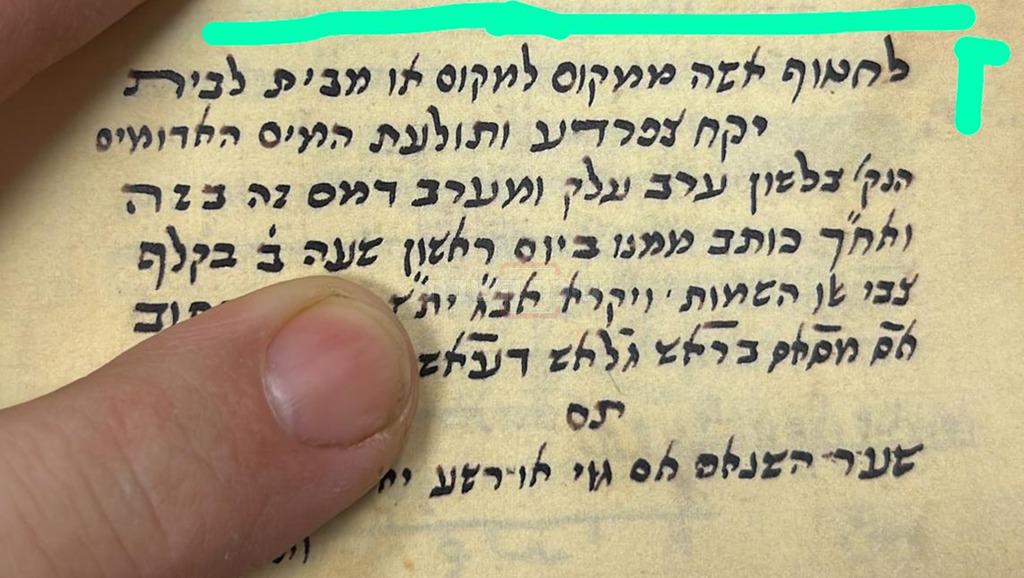 לחטוף אשה ממקום למקום או מבית לבית
יקח צפרדיע ותולעת המים האדומים
הנק׳ בלשון ערב עלק ומערב דמם זה בזה
ואח״ך כותב ממנו ביום ראשון שעה ב׳ בקלף
צבי אלו השמות ויקרא אב״ג ית״צ
אם מסאם בראש גלאש דעבאש
תם
שער השנאם אם גוי או רשע